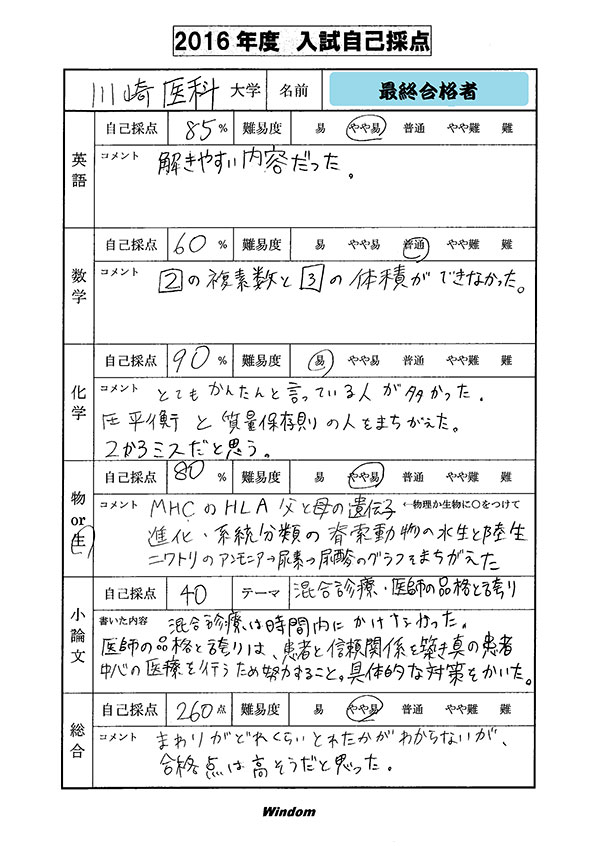 2016 年度 入試自己採点
川崎医科 大学 名前 最終合格者
英語 自己採点 85 % 難易度 易 やや易 普通 やや難 難
コメント 解きやすい内容だった。
数学 自己採点 60 % 難易度 易 やや易 普通 やや難 難
コメント 2の複素数と3の体積ができなかった。
化学 自己採点 90 % 難易度 易 やや易 普通 やや難 難
コメント とてもかんたんと言っている人が多かった。
圧平衡と質量保存則の人をまちがえた。
2かろミスだと思う。
物 or 生 自己採点 80 % 難易度 易 やや易 普通 やや難 難
コメント MHCのHLA 父と母の遺伝子 ←物理か生物に○をつけて
進化・系統分類の脊索動物の水生と陸生
ニワトリのアンモニア→尿素→尿酸のグラフをまちがえた
小論文 自己採点 40 テーマ 混合診療・医師の品格と誇り
書いた内容 混合診療は時間内にかけなかった。
医師の品格と誇りは、患者と信頼関係を築き真の患者
中心の医療を行うため努力すること。具体的な対策をかいた。
総合 自己採点 260 点 難易度 易 やや易 普通 やや難 難
コメント まわりがどれくらいとれたかがわからないが、
合格点は高そうだと思った。
Windom